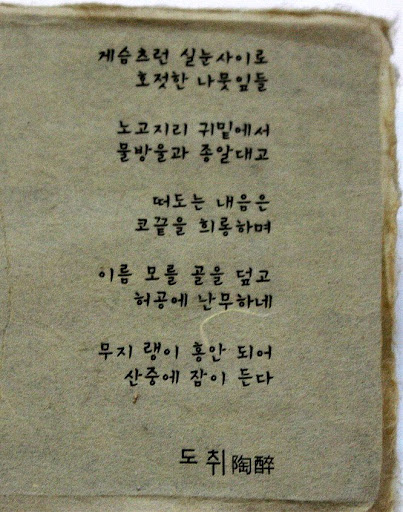 게슴츠런 실눈사이로
호젓한 나뭇잎들
노고지리 귀밑에서
물방울과 종알대고
떠도는 내음은
코끝을 희롱하며
이름 모를 골을 덮고
허공에 난무하네
무지 랭이 홍안 되어
산중에 잠이 든다
도취 陶醉